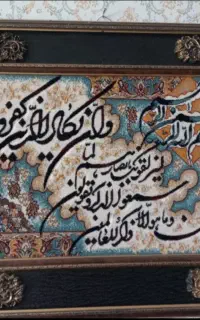 بسم الله الرحمن
وان یکاد الذین کفرو
لیزلقونک بابصار لما
سمعوا الذکر و یقولون
و ما هو الا ذکر للعالمین